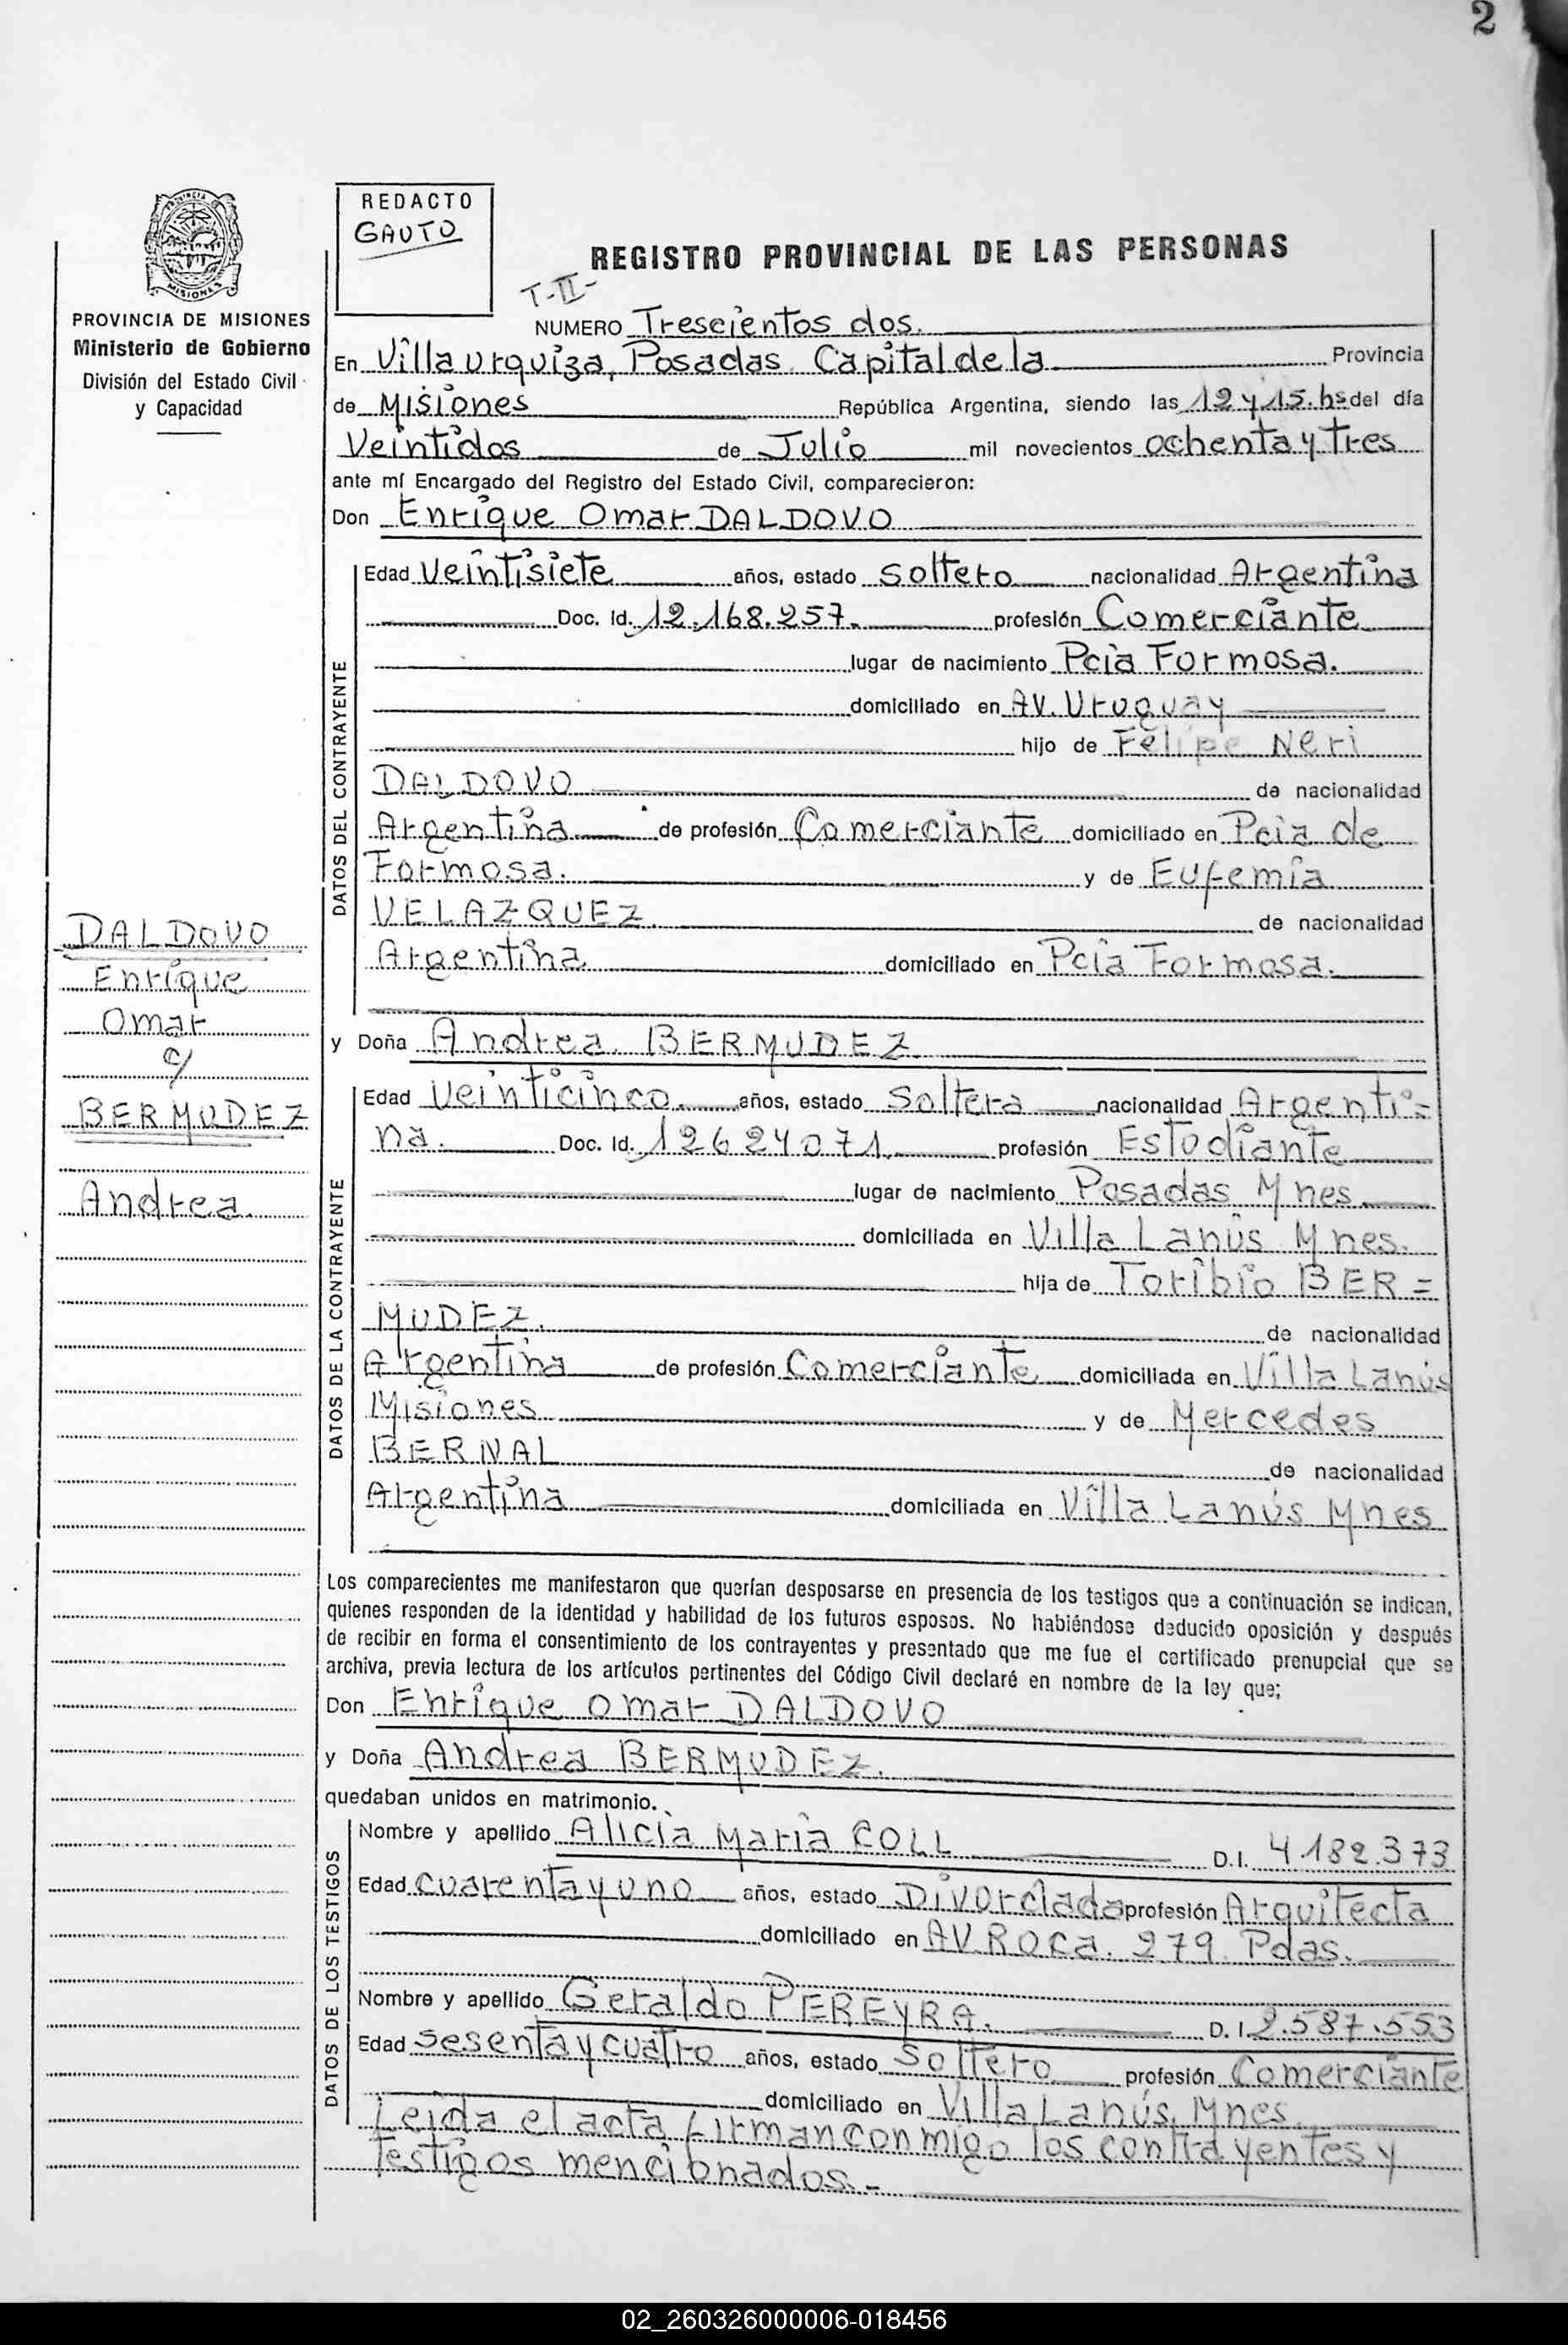 2
REDACTO
GAUTO
REGISTRO PROVINCIAL DE LAS PERSONAS
T-II-
PROVINCIA DE MISIONES
Ministerio de Gobierno
División del Estado Civil
y Capacidad
NUMERO Trescientos dos.
En Villa urquiza, Posadas Capital de la Provincia
de Misiones República Argentina, siendo las 12 y 15. hs del día
Veintidos de Julio mil novecientos ochenta y tres
ante mí Encargado del Registro del Estado Civil, comparecieron:
Don Enrique Omar DALDOVO
DATOS DEL CONTRAYENTE
Edad Veintisiete años, estado soltero nacionalidad Argentina
Doc. Id. 12.168.257. profesión Comerciante
lugar de nacimiento Pcia Formosa.
domiciliado en AV. Uruguay
hijo de Felipe Neri
DALDOVO de nacionalidad
Argentina de profesión Comerciante domiciliado en Pcia de
Formosa. y de Eufemia
VELAZQUEZ. de nacionalidad
Argentina domiciliado en Pcia Formosa.
DALDOVO
Enrique
Omar
c/
BERMUDEZ
Andrea
y Doña Andrea BERMUDEZ
DATOS DE LA CONTRAYENTE
Edad Veinticinco años, estado Soltera nacionalidad Argenti=
na. Doc. Id. 12624071. profesión Estudiante
lugar de nacimiento Posadas Mnes
domiciliada en Villa Lanús Mnes.
hija de Toribio BER=
MUDEZ. de nacionalidad
Argentina de profesión Comerciante domiciliada en Villa Lanús
Misiones y de Mercedes
BERNAL de nacionalidad
Argentina domiciliada en Villa Lanús Mnes
Los comparecientes me manifestaron que querían desposarse en presencia de los testigos que a continuación se indican,
quienes responden de la identidad y habilidad de los futuros esposos. No habiéndose deducido oposición y después
de recibir en forma el consentimiento de los contrayentes y presentado que me fue el certificado prenupcial que se
archiva, previa lectura de los artículos pertinentes del Código Civil declaré en nombre de la ley que;
Don Enrique Omar DALDOVO
y Doña Andrea BERMUDEZ.
quedaban unidos en matrimonio.
DATOS DE LOS TESTIGOS
Nombre y apellido Alicia Maria COLL D.I. 4.182.373
Edad cuarenta y uno años, estado Divorciada profesión Arquitecta
domiciliado en AV. Roca. 279 Pdas.
Nombre y apellido Geraldo PEREYRA. D. I. 2.587.553
Edad sesenta y cuatro años, estado Soltero profesión Comerciante
domiciliado en Villa Lanús, Mnes
Leida el acta firman conmigo los contrayentes y
Testigos mencionados.-
02_260326000006-018456